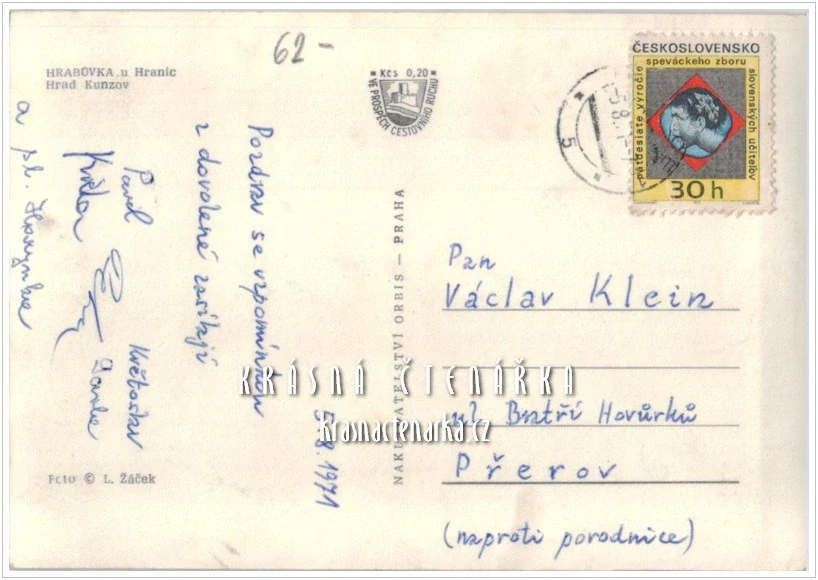 62-
HRABŮVKA u Hranic
Hrad Kunzov
Kčs 0,20
VE PROSPĚCH CESTOVNÍHO RUCHU
ČESKOSLOVENSKO
speváckeho zboru
slovenských učiteľov
päťdesiate výročie
30 h
5
Pozdrav se vzpomínkou
z dovolené zasílají
Pavil
Květa
Květoslav
a pí.
5.8.1971
NAKLADATELSTVÍ ORBIS — PRAHA
Pan
Václav Klein
KRÁSNÁ ČTENÁŘKA
Krasnactenarka.cz
ul. Bratří Hovůrků
Přerov
(naproti porodnice)
Foto © L. Žáček